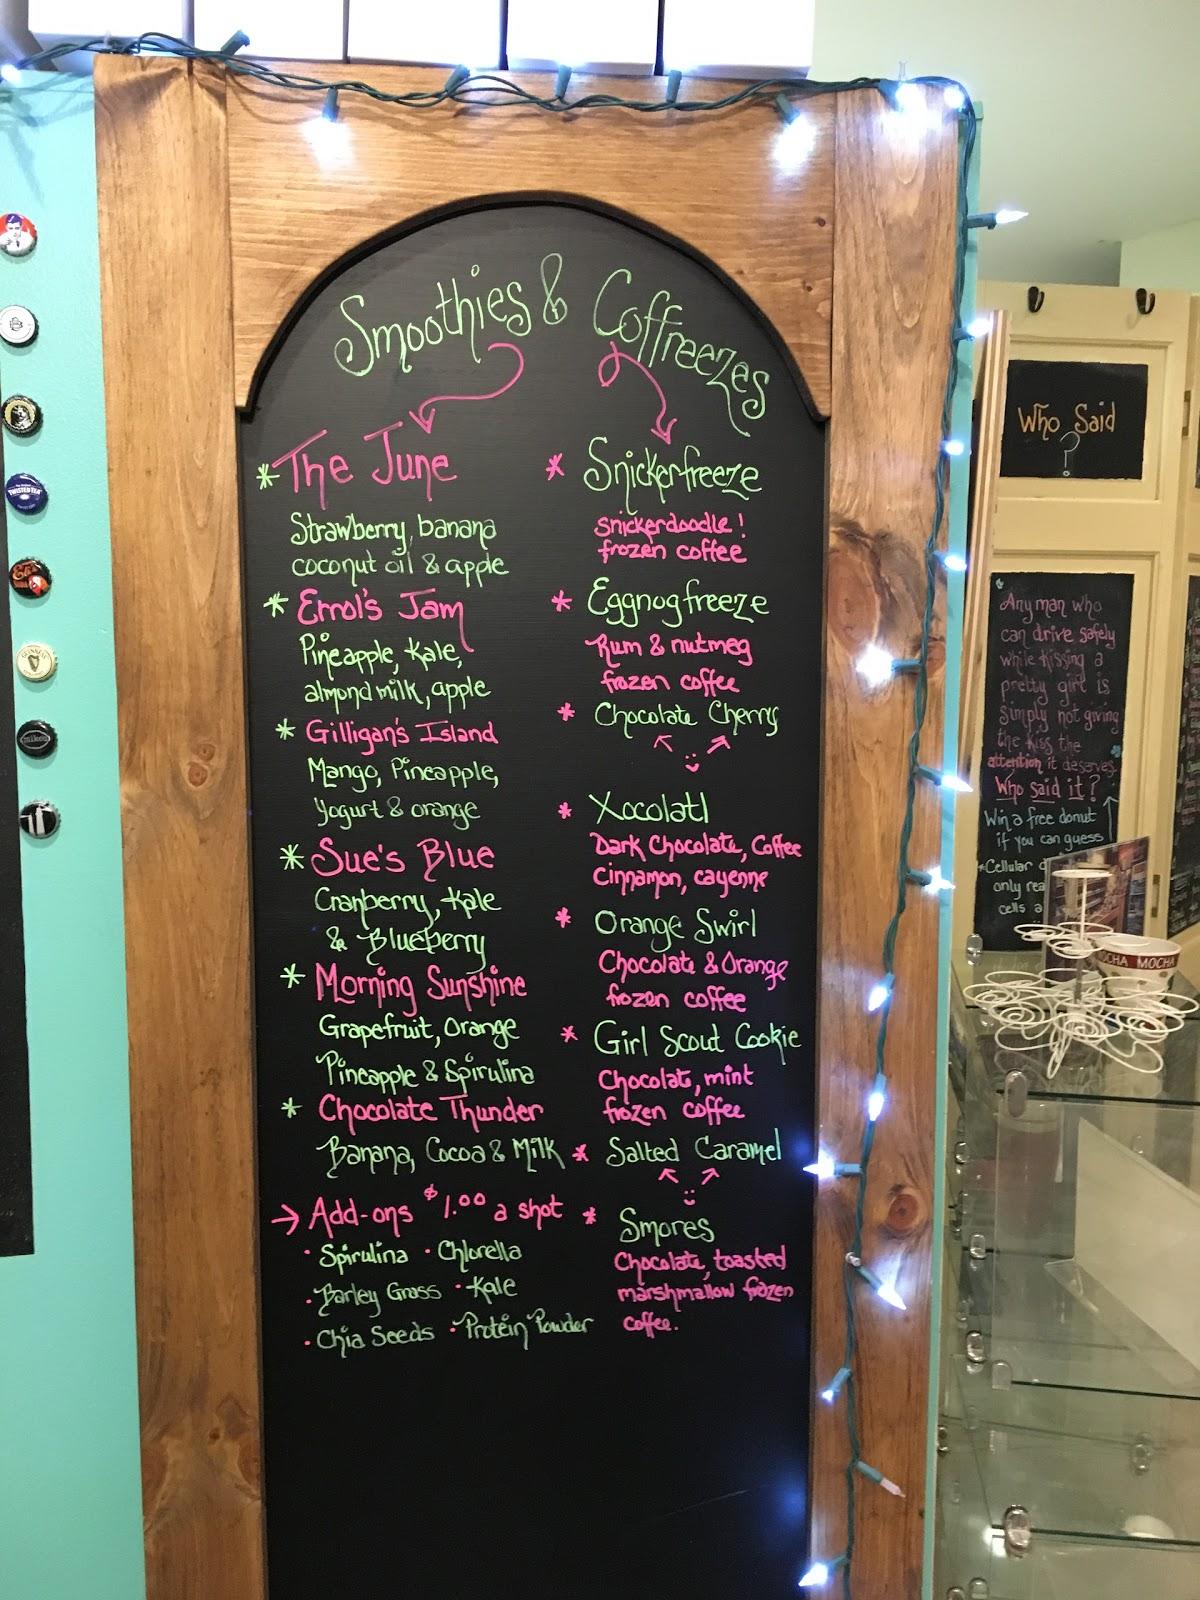 Smoothies & Coffreezes
* The June
Strawberry, banana
coconut oil & apple
* Errol's Jam
Pineapple, Kale,
almond milk, apple
* Gilligan's Island
Mango, Pineapple,
Yogurt & orange
* Sue's Blue
Cranberry, Kale
& Blueberry
* Morning Sunshine
Grapefruit, Orange
Pineapple & Spirulina
* Chocolate Thunder
Banana, Cocoa & Milk
→ Add-ons $1.00 a shot
· Spirulina · Chlorella
· Barley Grass · Kale
· Chia Seeds · Protein Powder
* Snickerfreeze
snickerdoodle!
frozen coffee
* Eggnogfreeze
Rum & nutmeg
frozen coffee
* Chocolate Cherry
* Xocolatl
Dark Chocolate, Coffee
cinnamon, cayenne
* Orange Swirl
Chocolate & Orange
frozen coffee
* Girl Scout Cookie
Chocolate, mint
frozen coffee
* Salted Caramel
* Smores
Chocolate, toasted
marshmallow frozen
coffee.
Who Said
?
Any man who
can drive safely
while kissing a
pretty girl is
simply not giving
the kiss the
attention it deserves.
Who said it?
Win a free donut
if you can guess
*Cellular
only
cells a
MOCHA
TWISTED TEA
GUINNESS